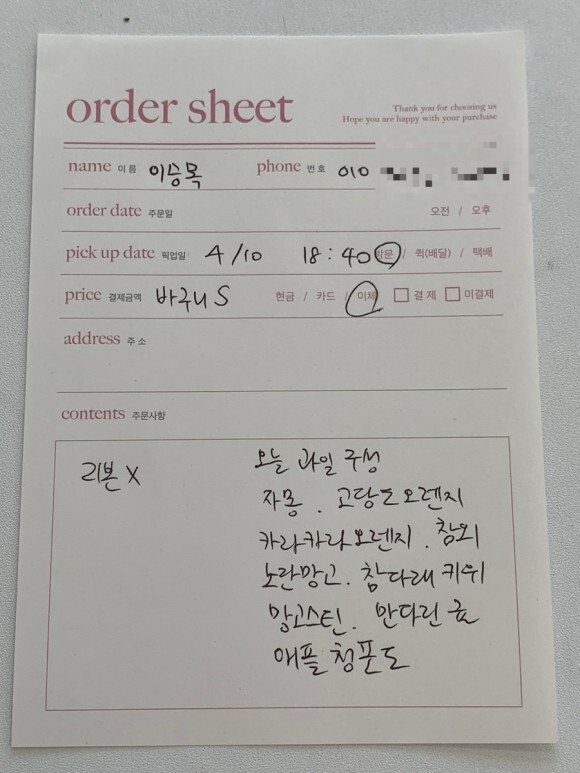 order sheet
Thank you for choosing us
Hope you are happy with your purchase
name 이름 이승목 phone 번호 010
order date 주문일 오전 / 오후
pick up date 픽업일 4/10 18:40 방문 / 퀵(배달) / 택배
price 결제금액 바구니 S 현금 / 카드 / 이체 결제 미결제
address 주소
contents 주문사항
리본 X
오늘 과일 구성
자몽 . 고당도오렌지
카라카라오렌지 . 참외
노란망고 . 참다래 키위
망고스틴 . 만다린 귤
애플 청포도